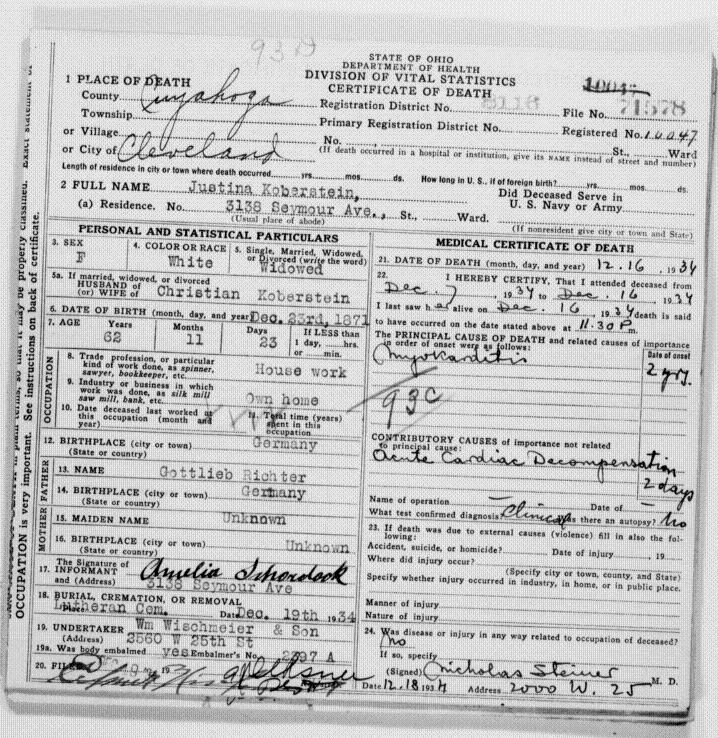 93D
STATE OF OHIO
DEPARTMENT OF HEALTH
DIVISION OF VITAL STATISTICS
CERTIFICATE OF DEATH
1 PLACE OF DEATH
County Cuyahoga
Registration District No. 8116 File No. 71578
Township
Primary Registration District No. Registered No. 10047
or Village No. St., Ward
or City of Cleveland (If death occurred in a hospital or institution, give its NAME instead of street and number)
Length of residence in city or town where death occurred yrs. mos. ds. How long in U. S., if of foreign birth? yrs. mos. ds.
2 FULL NAME Justina Koberstein, Did Deceased Serve in U. S. Navy or Army
(a) Residence. No. 3138 Seymour Ave., St., Ward.
(Usual place of abode) (If nonresident give city or town and State)
PERSONAL AND STATISTICAL PARTICULARS
3. SEX F
4. COLOR OR RACE White
5. Single, Married, Widowed, or Divorced (write the word) Widowed
5a. If married, widowed, or divorced
HUSBAND of
(or) WIFE of Christian Koberstein
6. DATE OF BIRTH (month, day, and year) Dec. 23rd, 1871
7. AGE Years 62 Months 11 Days 23 If LESS than 1 day, hrs. or min.
OCCUPATION
8. Trade, profession, or particular kind of work done, as spinner, sawyer, bookkeeper, etc. House work
9. Industry or business in which work was done, as silk mill saw mill, bank, etc. Own home
10. Date deceased last worked at this occupation (month and year)
11. Total time (years) spent in this occupation
12. BIRTHPLACE (city or town) Germany
(State or country)
FATHER
13. NAME Gottlieb Richter
14. BIRTHPLACE (city or town) Germany
(State or country)
MOTHER
15. MAIDEN NAME Unknown
16. BIRTHPLACE (city or town) Unknown
(State or country)
17. The Signature of INFORMANT Amelia
and (Address) 3138 Seymour Ave
18. BURIAL, CREMATION, OR REMOVAL
Place Lutheran Cem. Date Dec. 19th 1934
19. UNDERTAKER Wm Wischmeier & Son
(Address) 2560 W 25th St
19a. Was body embalmed yes Embalmer's No. 2397 A
20. FILED
MEDICAL CERTIFICATE OF DEATH
21. DATE OF DEATH (month, day, and year) 12.16, 1934
22. I HEREBY CERTIFY, That I attended deceased from
Dec. 7, 1934 to Dec. 16, 1934
I last saw h er alive on Dec. 16, 1934 death is said
to have occurred on the date stated above at 11.30 P.m.
The PRINCIPAL CAUSE OF DEATH and related causes of importance in order of onset were as follows:
Date of onset
Myokarditis 2 yrs.
93c
CONTRIBUTORY CAUSES of importance not related to principal cause:
Acute Cardiac Decompensation
2 days
Name of operation — Date of —
What test confirmed diagnosis? Clinical Was there an autopsy? No
23. If death was due to external causes (violence) fill in also the following:
Accident, suicide, or homicide? Date of injury , 19
Where did injury occur?
(Specify city or town, county, and State)
Specify whether injury occurred in industry, in home, or in public place.
Manner of injury
Nature of injury
24. Was disease or injury in any way related to occupation of deceased?
No
If so, specify
(Signed) Nicholas Steiner M. D.
Date 12.18 1934 Address 2000 W. 25
OCCUPATION is very important. See instructions on back of certificate.
it may be properly classified. Exact statement of